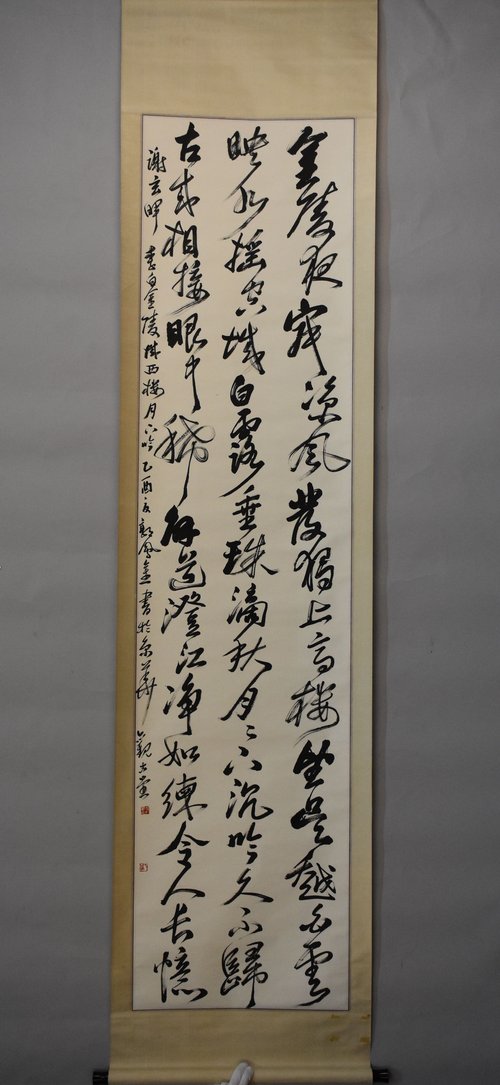 金陵夜寂涼風發獨上高樓望吳越白雲
映水摇空城白露垂珠滴秋月々下沉吟久不歸
古來相接眼中稀解道澄江净如練令人長憶
謝玄暉 李白金陵城西樓月下吟 乙酉夏 書於京華觀古堂